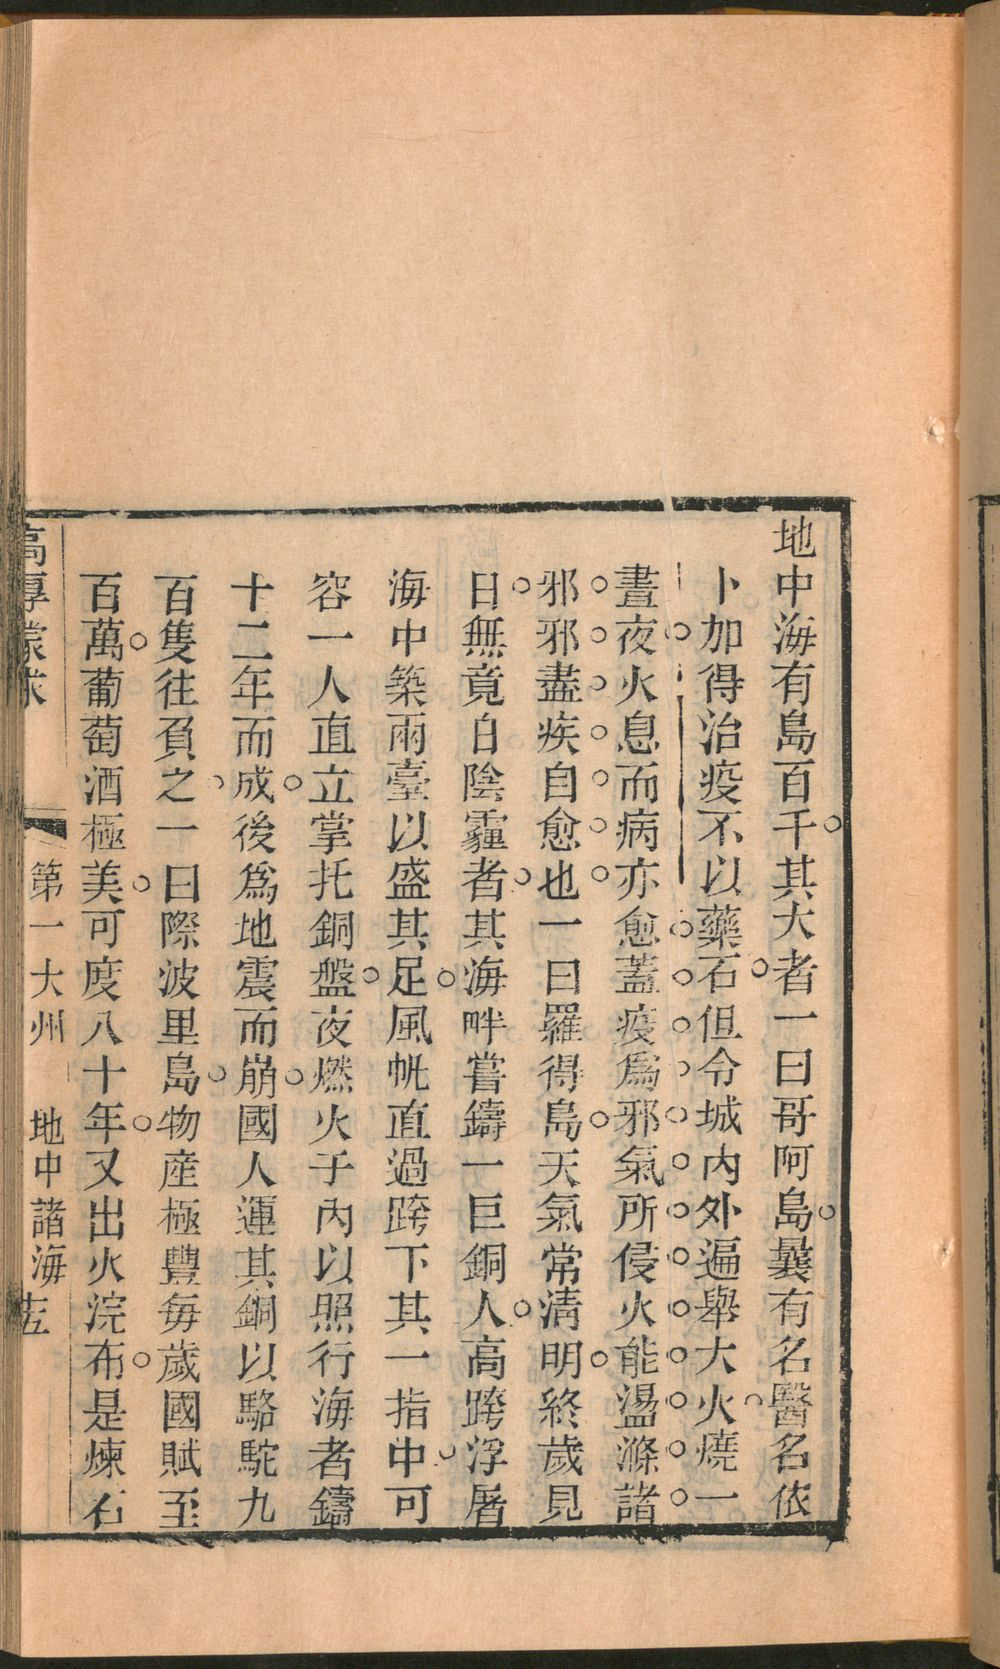 地中海有島百千其大者一曰哥阿島曩有名醫名依
卜加得治疫不以藥石但令城內外遍舉大火燒一
晝夜火息而病亦愈蓋疫爲邪氣所侵火能盪滌諸
邪邪盡疾自愈也一曰羅得島天氣常淸明終歲見
日無竟日陰霾者其海畔嘗鑄一巨銅人高跨浮屠
海中築兩臺以盛其足風帆直過跨下其一指中可
容一人直立掌托銅盤夜燃火于內以照行海者鑄
十二年而成後爲地震而崩國人運其銅以駱駝九
百隻往負之一曰際波里島物產極豐每歲國賦至
百萬葡萄酒極美可度八十年又出火浣布是煉石
高厚蒙求 第一大州 地中諸海